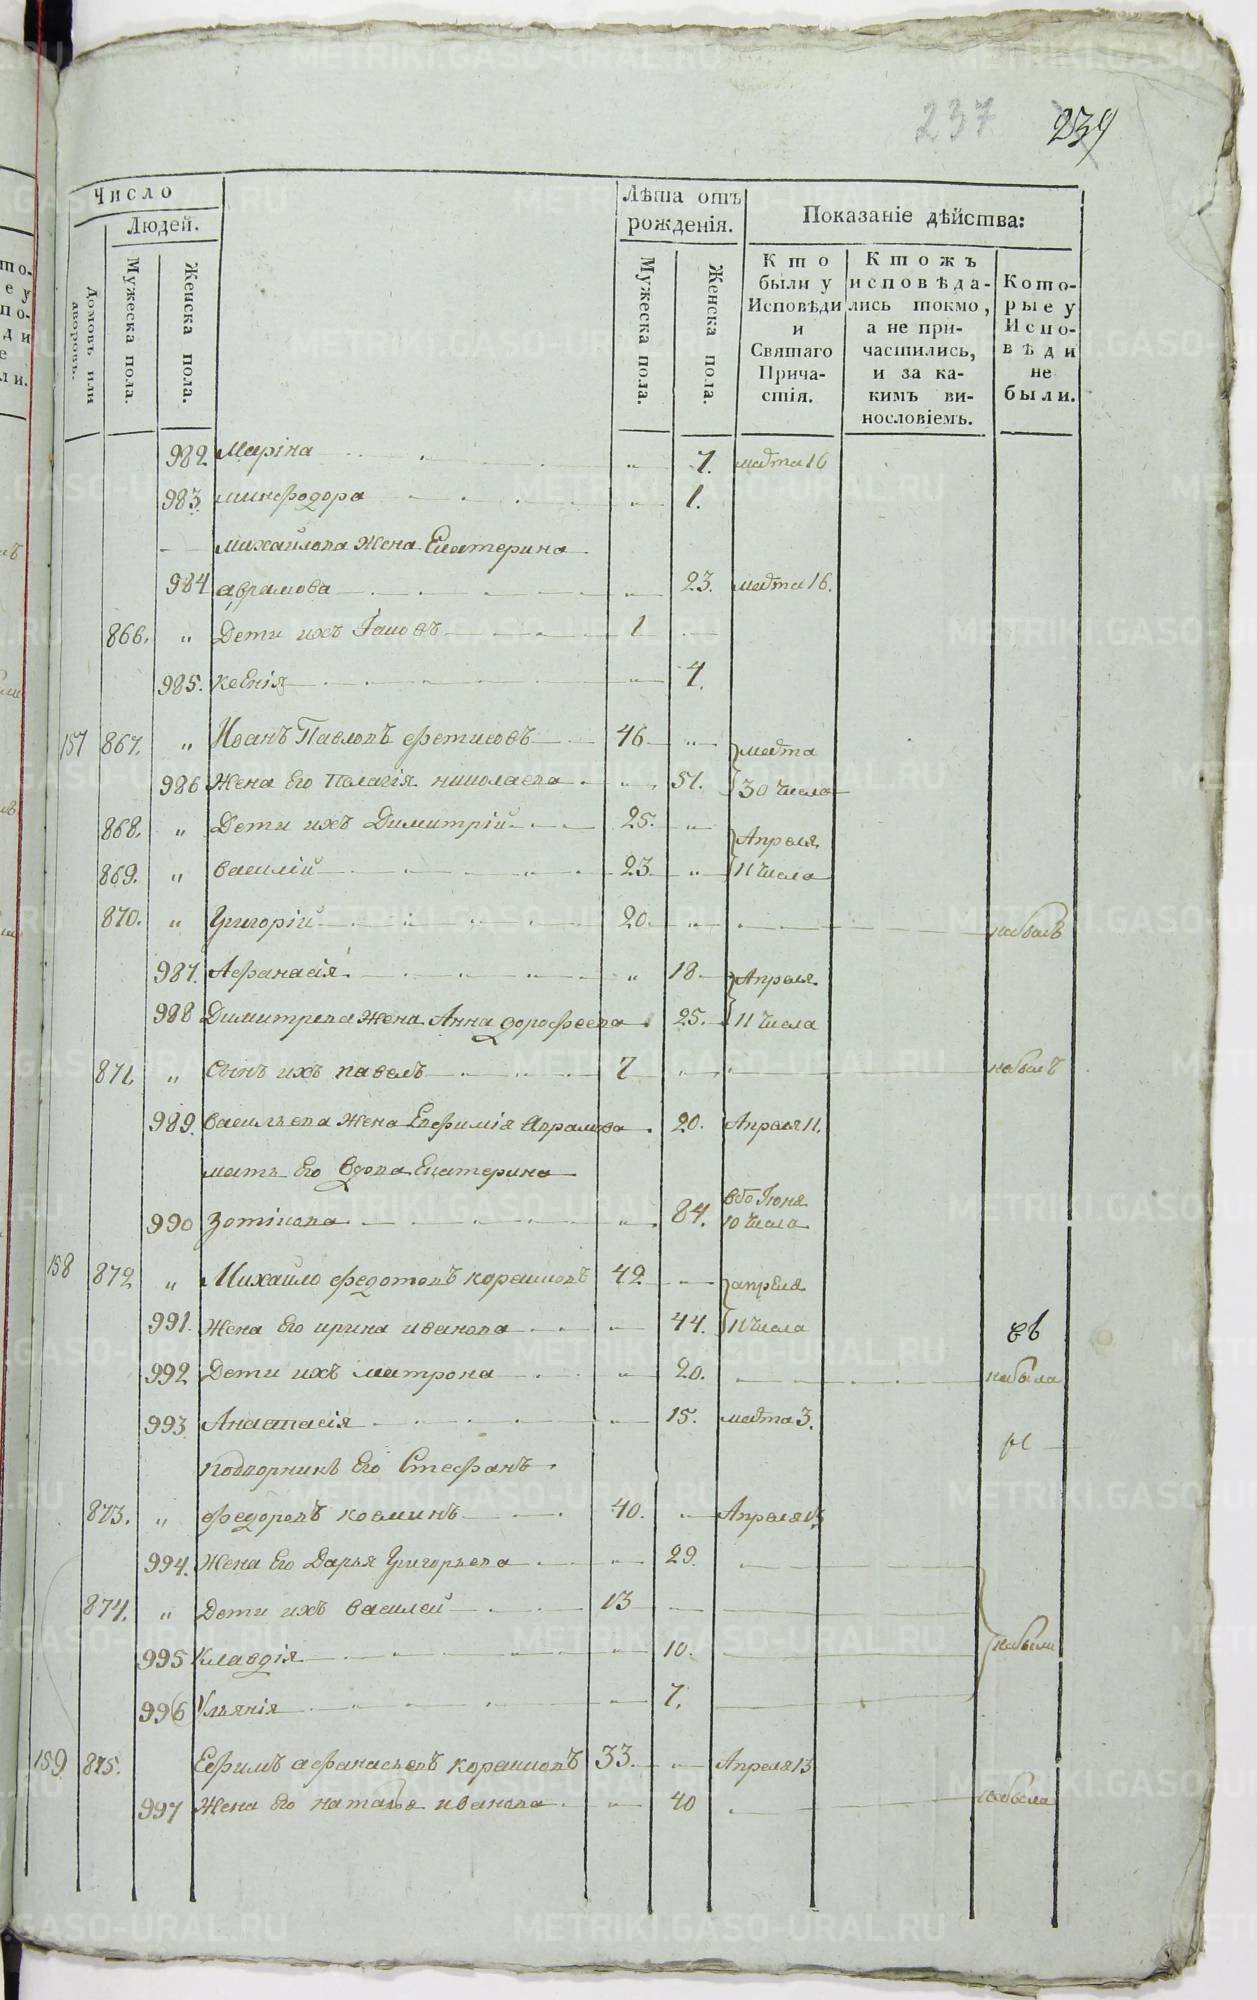 237 239
Число
Людей.
Домовъ или дворовъ.
Мужеска пола.
Женска пола.
Лѣта отъ рожденія.
Мужеска пола.
Женска пола.
Показаніе дѣйства:
Кто были у Исповѣди и Святаго Причастія.
Ктожъ исповѣдались токмо, а не причастились, и за какимъ винословіемъ.
Которые у Исповѣди не были.
982 Маріна " 7. марта 16
983. минфодора " 1.
Михайлова жена Екатерина
984 аврамова " 23. марта 16.
866. " Дети ихъ Іаковъ 1
985. ксенія " 4.
157 867. " Иоанъ Павловъ фетисовъ 46 " марта
986 Жена Его Пелагія николаева " 51. 30 числа
868. " Дети ихъ Димитрій 25. " Апреля
869. " василій 23 " 11 числа
870. " Григорій 20. " небылъ
987. Афанасія " 18. Апреля
988 Димитрева жена Анна дорофеева 25. 11 числа
871. " Сынъ ихъ павелъ 7 небылъ
989. васильева жена Евфимія аврамова 20. Апреля 11.
мать Его вдова Екатерина
990 Зотикова " 84. Іюня 10 числа
158 872 " Михайло федотовъ корашовъ 42 апреля
991. Жена Его ирина иванова 44. 11 числа
992 Дети ихъ матрона " 20. небыла
993 Анастасія " 15. марта 3.
подворникъ Его Стефанъ
873. " федоровъ косминъ 40. Апреля 13
994. Жена Его Дарья Григорьева " 29.
874. " Дети ихъ василей 13
995 Клавдія " 10. небыли
996 Ульянія " 7.
159 875. Ефимъ афанасьевъ корашовъ 33. Апреля 13
997 Жена Его наталья иванова " 40 небыла
METRIKI.GASO-URAL.RU